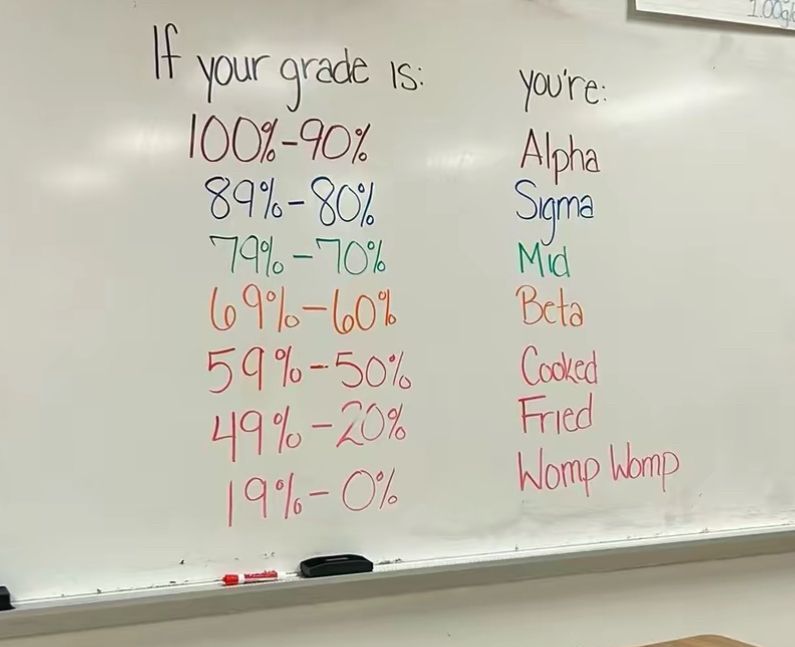 1.00g
If your grade is: you're:
100%-90% Alpha
89%-80% Sigma
79%-70% Mid
69%-60% Beta
59%-50% Cooked
49%-20% Fried
19%-0% Womp Womp